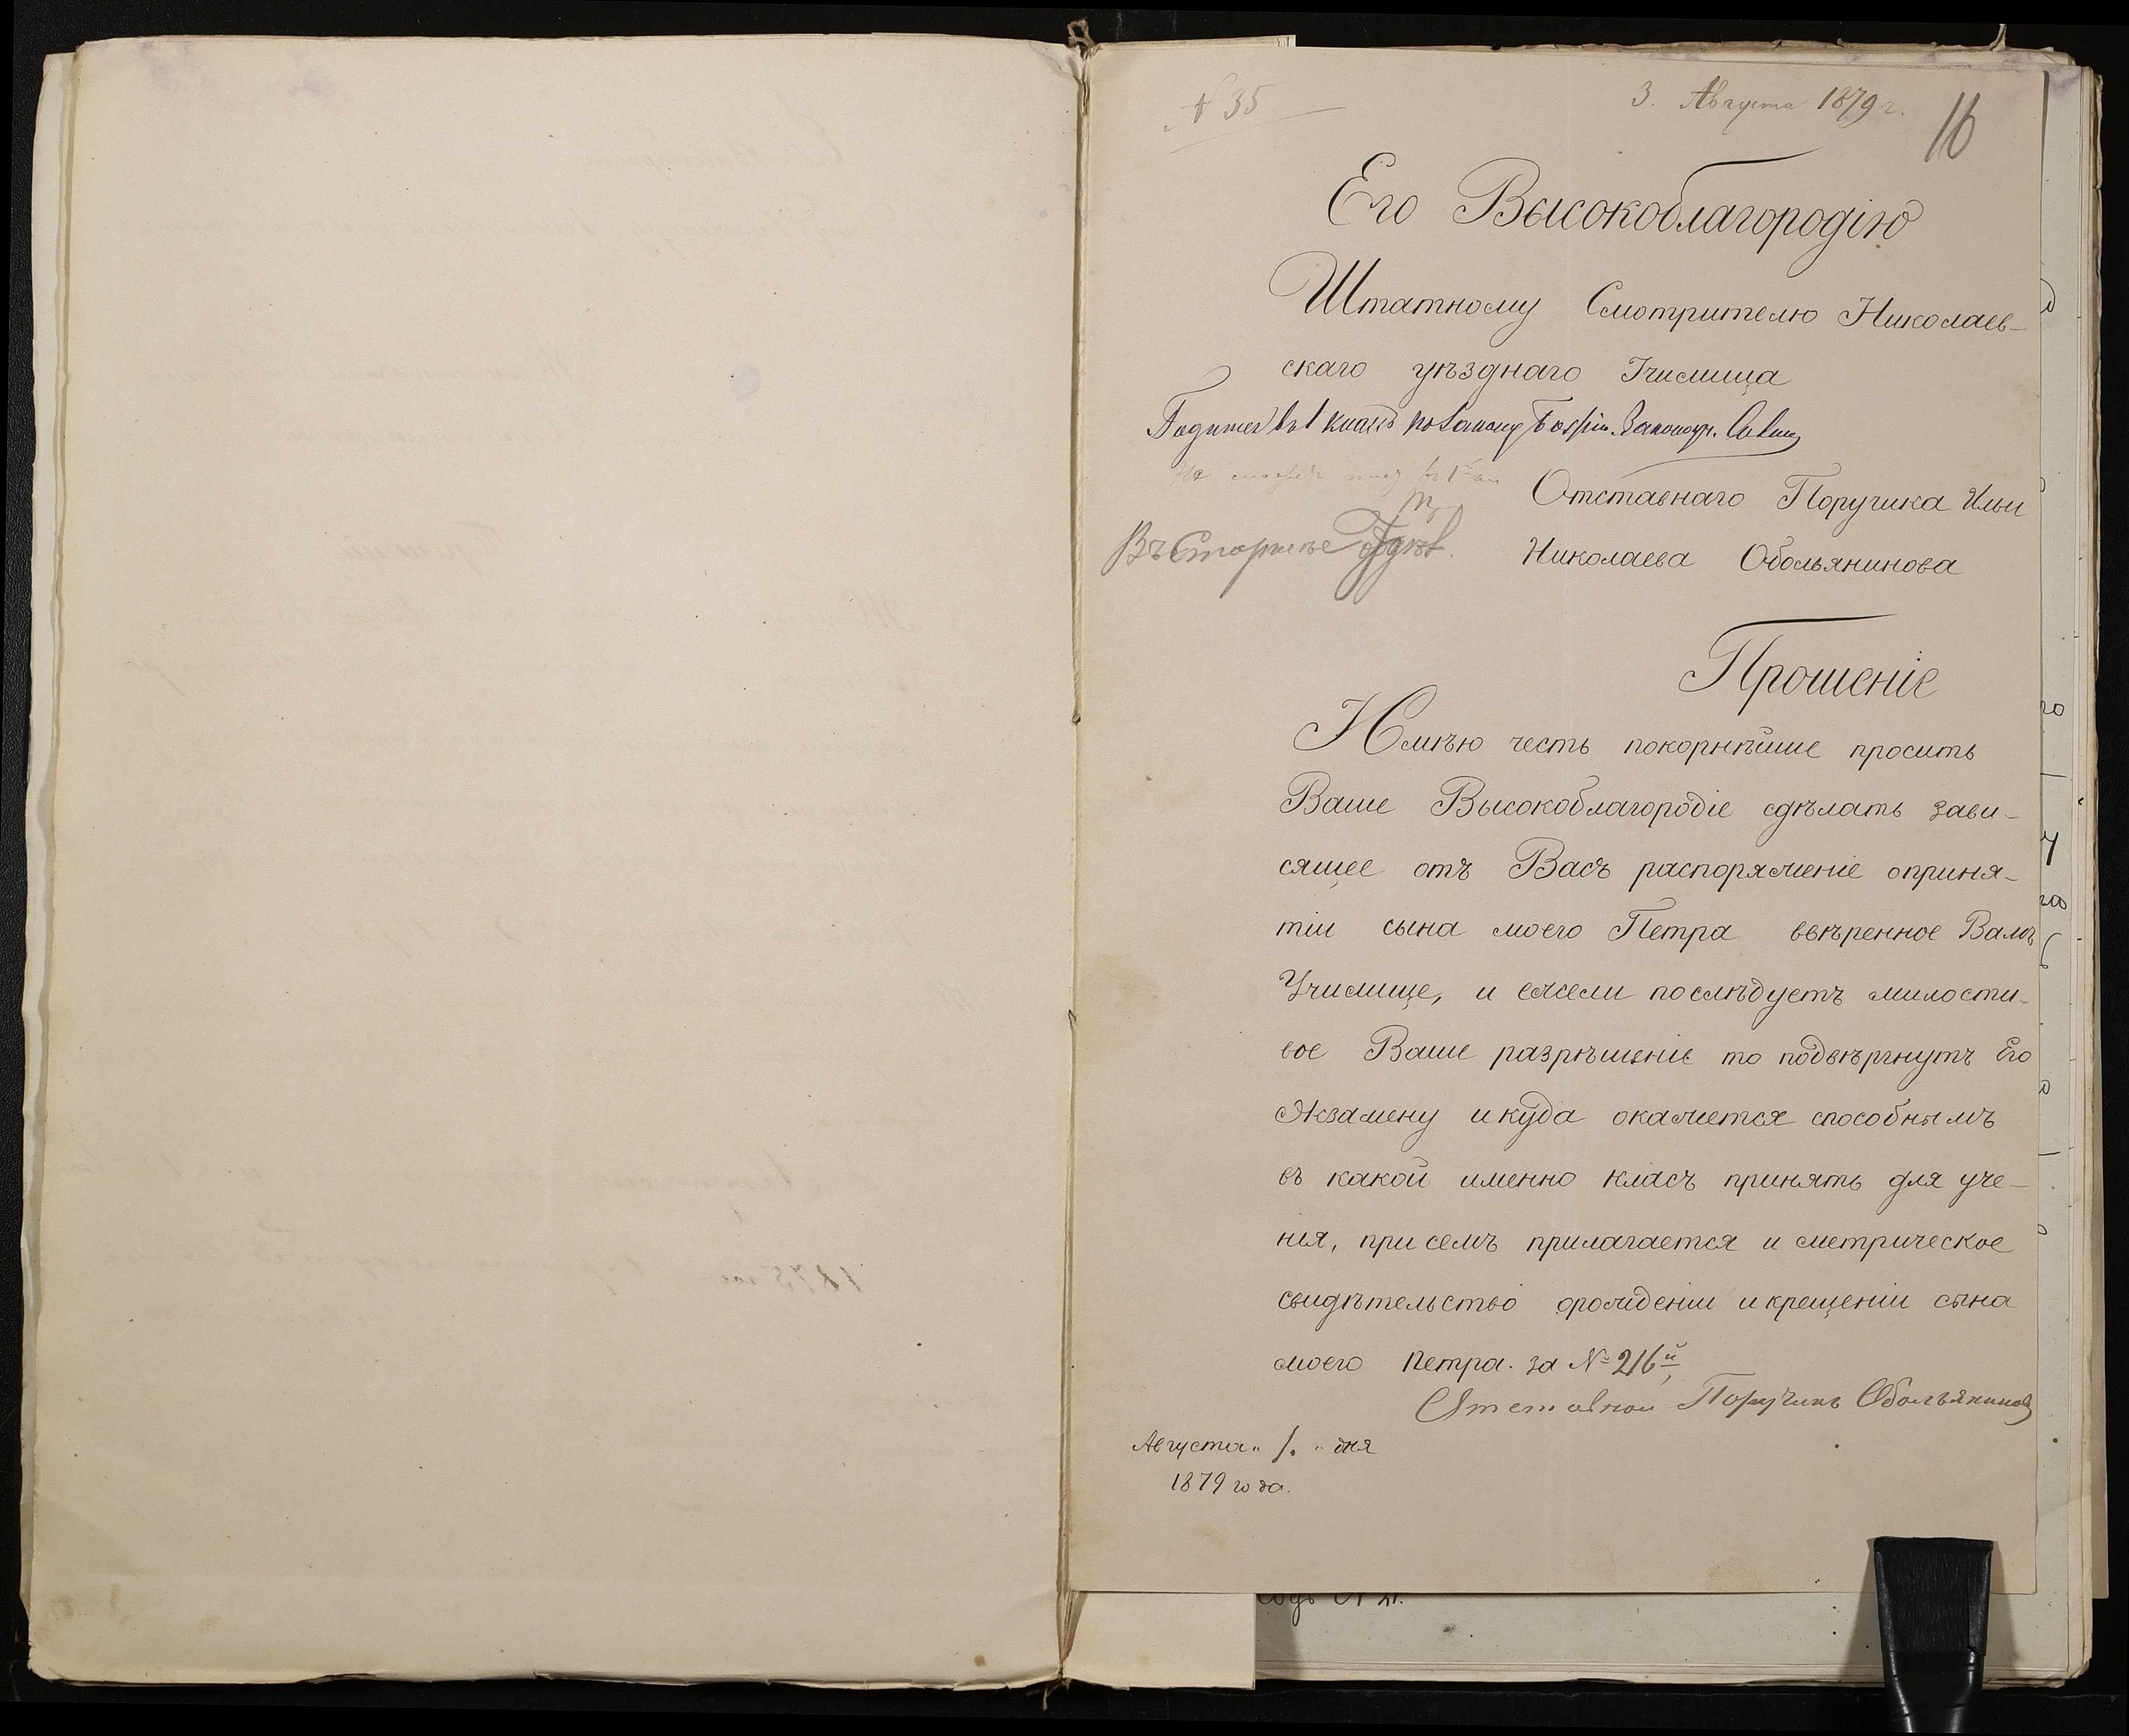 № 35
3. Августа 1879 г.
16
Его Высокоблагородію
Штатному Смотрителю Николаев-
скаго уѣзднаго Училища
Годитея въ 1 классъ по Закону Божію. Законоуч.
Отставнаго Поручика Ильи
Въ Старшее
Николаева Обольянинова
Прошеніе
Имѣю честь покорнѣйше просить
Ваше Высокоблагородіе сдѣлать зави-
сящее отъ Васъ распоряженіе оприня-
тіи сына моего Петра ввѣренное Вамъ
Училище, и ежели послѣдуетъ милости-
вое Ваше разрѣшеніе то подвѣргнутъ Его
Экзамену икуда окажется способнымъ
въ какой именно класъ принять для уче-
нія, при семъ прилагается и метрическое
свидѣтельство орожденіи икрещеніи сына
моего Петра. за № 216й,
Отставной Поручикъ Обольяниновъ
Августа „ 1. „ дня
1879 года.